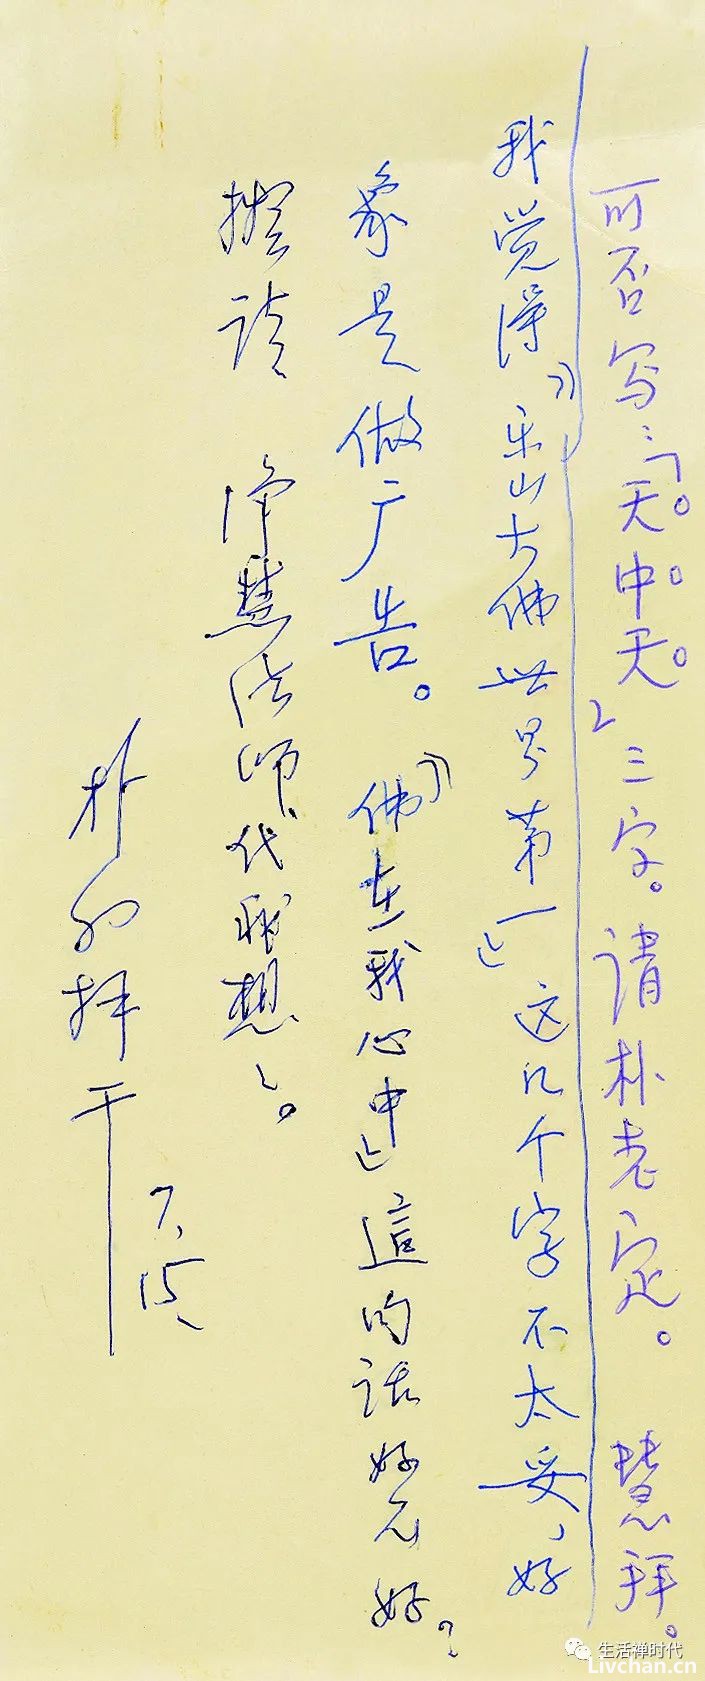 可否写:「天中天」三字。请朴老定。 慧拜。
我觉得“乐山大佛世界第一”这几个字不太妥,好
象是做广告。“佛在我心中”這句话好不好?
擬请 净慧法师代我想想。
朴初拜
7.15
生活禅时代
Livchan.cn